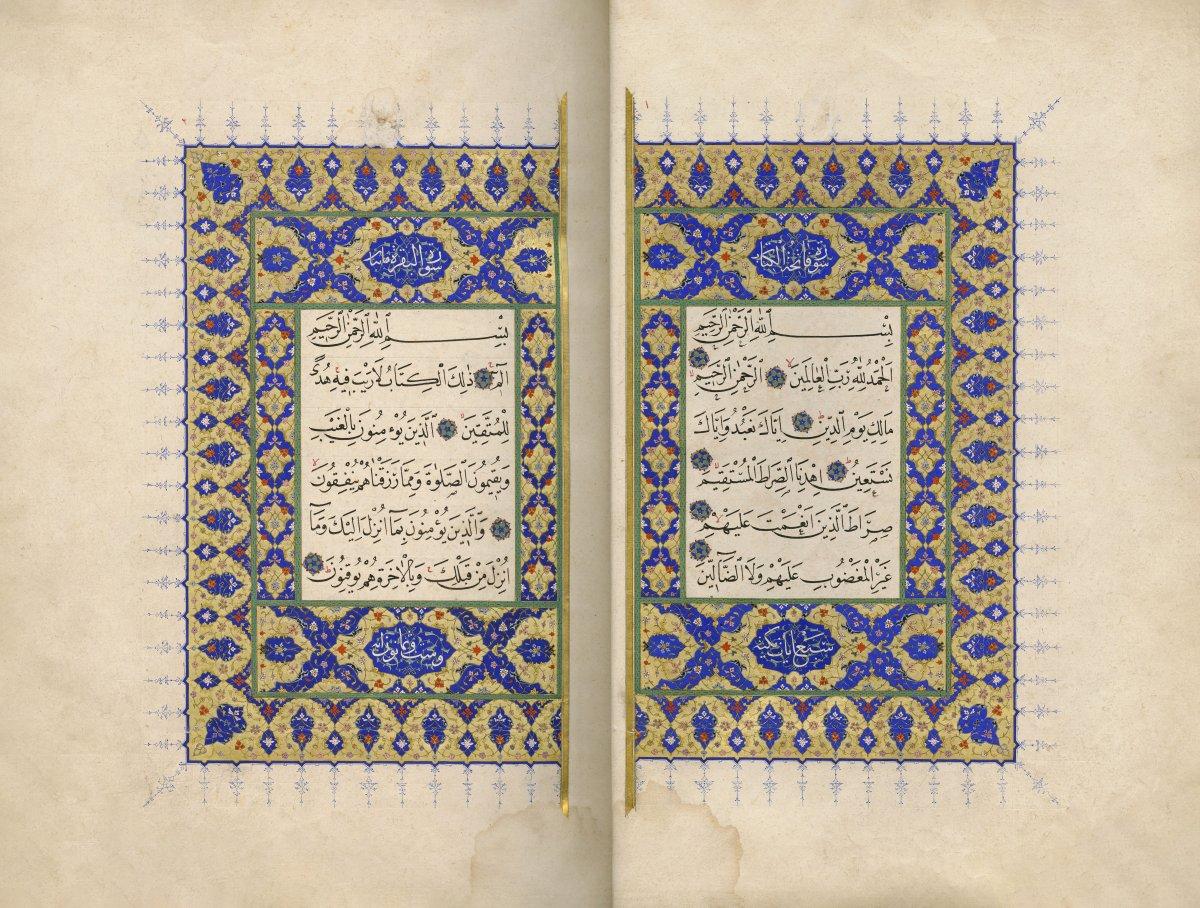 سورة فاتحة الكتاب
بِسْمِ اللهِ الرَّحْمٰنِ الرَّحِيمِ
اَلْحَمْدُ لِلّٰهِ رَبِّ الْعَالَمِينَ الرَّحْمٰنِ الرَّحِيمِ
مَالِكِ يَوْمِ الدِّينِ اِيَّاكَ نَعْبُدُ وَاِيَّاكَ
نَسْتَعِينُ اِهْدِنَا الصِّرَاطَ الْمُسْتَقِيمَ
صِرَاطَ الَّذِينَ اَنْعَمْتَ عَلَيْهِمْ
غَيْرِ الْمَغْضُوبِ عَلَيْهِمْ وَلَا الضَّالِّينَ
سبع ايات مكية
سورة البقرة مائتا
بِسْمِ اللهِ الرَّحْمٰنِ الرَّحِيمِ
الٓمٓ ذٰلِكَ الْكِتَابُ لَا رَيْبَ فِيهِ هُدًى
لِلْمُتَّقِينَ اَلَّذِينَ يُؤْمِنُونَ بِالْغَيْبِ
وَيُقِيمُونَ الصَّلٰوةَ وَمِمَّا رَزَقْنَاهُمْ يُنْفِقُونَ
وَالَّذِينَ يُؤْمِنُونَ بِمَا اُنْزِلَ اِلَيْكَ وَمَا
اُنْزِلَ مِنْ قَبْلِكَ وَبِالْاٰخِرَةِ هُمْ يُوقِنُونَ
وست وثمانون اية